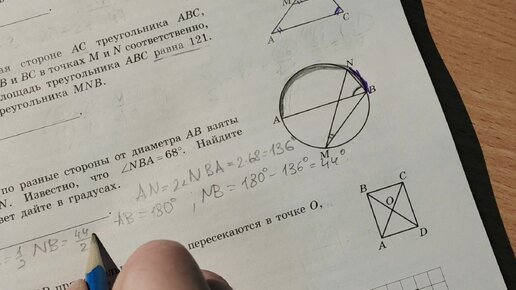 ая стороне AC треугольника ABC,
B и BC в точках M и N соответственно,
лощадь треугольника ABC равна 121.
реугольника MNB.
M
A
C
N
B
A
M
по разные стороны от диаметра AB взяты
N. Известно, что ∠NBA = 68°. Найдите
вет дайте в градусах.
AN = 2∠NBA = 2·68 = 136°
AB = 180° , NB = 180° - 136° = 44°
= 1/2 NB = 44/2
пересекаются в точке O,
B
C
O
A
D